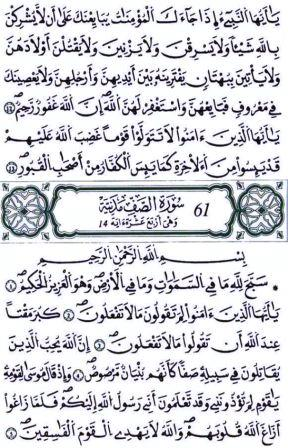 يَـٰٓأَيُّهَا ٱلنَّبِىُّ إِذَا جَآءَكَ ٱلْمُؤْمِنَـٰتُ يُبَايِعْنَكَ عَلَىٰٓ أَن لَّا يُشْرِكْنَ
بِٱللَّهِ شَيْـًٔا وَلَا يَسْرِقْنَ وَلَا يَزْنِينَ وَلَا يَقْتُلْنَ أَوْلَـٰدَهُنَّ
وَلَا يَأْتِينَ بِبُهْتَـٰنٍ يَفْتَرِينَهُۥ بَيْنَ أَيْدِيهِنَّ وَأَرْجُلِهِنَّ وَلَا يَعْصِينَكَ
فِى مَعْرُوفٍ فَبَايِعْهُنَّ وَٱسْتَغْفِرْ لَهُنَّ ٱللَّهَ إِنَّ ٱللَّهَ غَفُورٌ رَّحِيمٌ
يَـٰٓأَيُّهَا ٱلَّذِينَ ءَامَنُوا۟ لَا تَتَوَلَّوْا۟ قَوْمًا غَضِبَ ٱللَّهُ عَلَيْهِمْ
قَدْ يَئِسُوا۟ مِنَ ٱلْـَٔاخِرَةِ كَمَا يَئِسَ ٱلْكُفَّارُ مِنْ أَصْحَـٰبِ ٱلْقُبُورِ
61 سُورَةُ ٱلصَّفِّ مَدَنِيَّة
وَهِىَ أَرْبَعَ عَشْرَةَ ءَايَة 14
بِسْمِ ٱللَّهِ ٱلرَّحْمَـٰنِ ٱلرَّحِيمِ
سَبَّحَ لِلَّهِ مَا فِى ٱلسَّمَـٰوَٰتِ وَمَا فِى ٱلْأَرْضِ وَهُوَ ٱلْعَزِيزُ ٱلْحَكِيمُ
يَـٰٓأَيُّهَا ٱلَّذِينَ ءَامَنُوا۟ لِمَ تَقُولُونَ مَا لَا تَفْعَلُونَ كَبُرَ مَقْتًا
عِندَ ٱللَّهِ أَن تَقُولُوا۟ مَا لَا تَفْعَلُونَ إِنَّ ٱللَّهَ يُحِبُّ ٱلَّذِينَ
يُقَـٰتِلُونَ فِى سَبِيلِهِۦ صَفًّا كَأَنَّهُم بُنْيَـٰنٌ مَّرْصُوصٌ وَإِذْ قَالَ مُوسَىٰ لِقَوْمِهِۦ
يَـٰقَوْمِ لِمَ تُؤْذُونَنِى وَقَد تَّعْلَمُونَ أَنِّى رَسُولُ ٱللَّهِ إِلَيْكُمْ فَلَمَّا زَاغُوٓا۟
أَزَاغَ ٱللَّهُ قُلُوبَهُمْ وَٱللَّهُ لَا يَهْدِى ٱلْقَوْمَ ٱلْفَـٰسِقِينَ